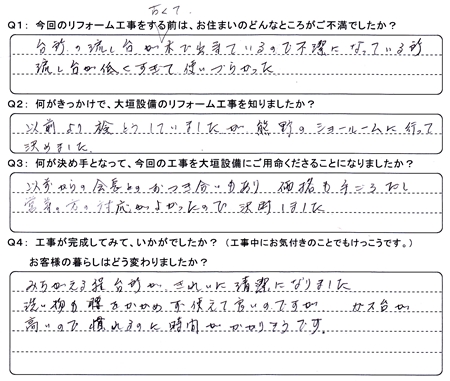 古くて
Q1: 今回のリフォーム工事をする前は、お住まいのどんなところがご不満でしたか?
台所の流し台が木で出来ているので不潔になっている所
流し台が低くすぎて使いづらかった
Q2: 何がきっかけで、大垣設備のリフォーム工事を知りましたか?
以前より検とうしていましたが熊野のショールームに行って
決めました
Q3: 何が決め手となって、今回の工事を大垣設備にご用命くださることになりましたか?
以前からの会長とのおつき合いもあり 価格も手ごろだし
営業の方の対応がよかったので決断しました
Q4: 工事が完成してみて、いかがでしたか? (工事中にお気付きのことでもけっこうです。)
お客様の暮らしはどう変わりましたか?
みちがえる程台所が、きれいに清潔になりました
洗い物も腰をかがめず使えて良いのですが ガス台が
高いので慣れるのに時間がかかりそうです。